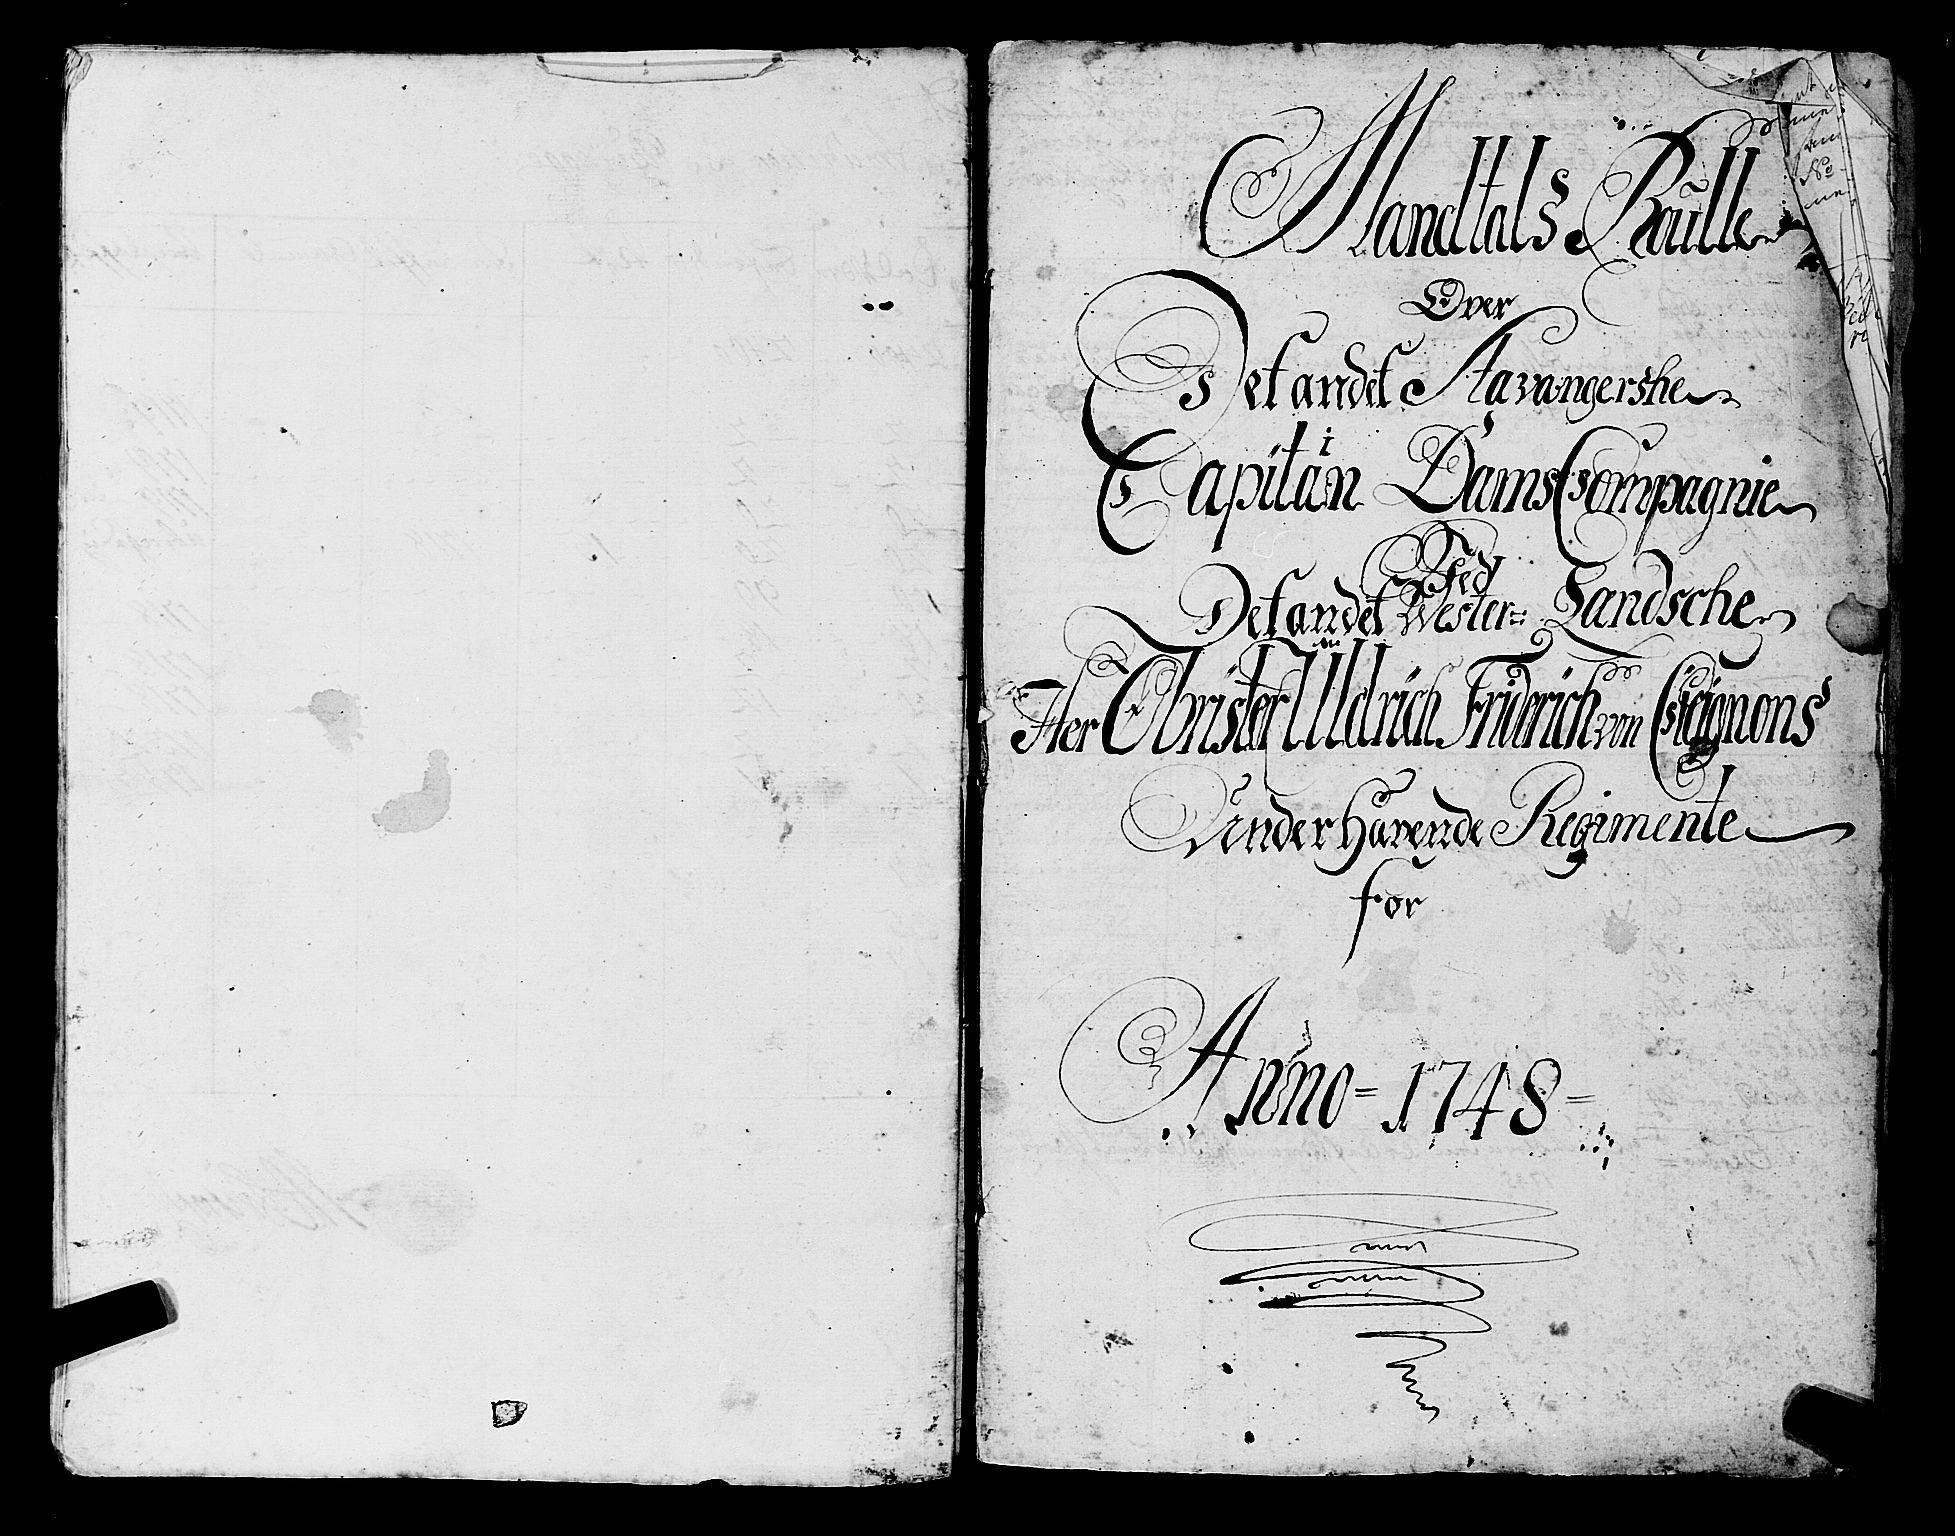 Mandtals Roulle
Over
Det andet Stavangerske
Capitain Dams Compagnie
Ved
Det andet Wester= Landsche
Her Ober
Christ Uldrich Friderich von Cicignons
Underhavende Regimente
for
Anno = 1748 =